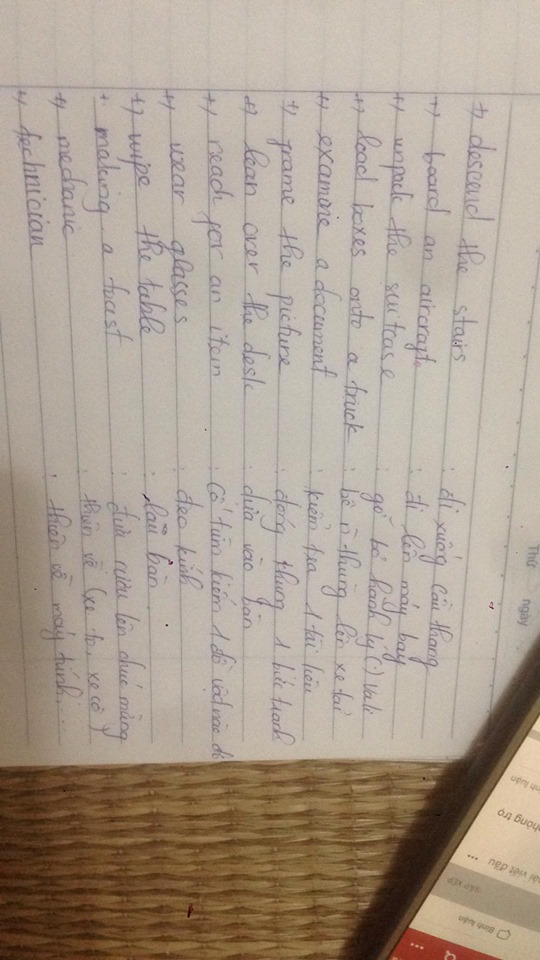 +) descend the stairs : đi xuống cầu thang
+) board an aircraft. : đi lên máy bay
+) unpack the suitcase : gỡ bỏ hành lý (:) Vali
+) load boxes onto a truck : bê n thùng lên xe tải
+) examine a document : kiểm tra 1 tài liệu
+) frame the picture : đóng khung 1 bức tranh
+) lean over the desk : dựa vào bàn
+) reach for an item : Cố tìm kiếm 1 đồ vật nào đó
+) wear glasses : đeo kính
+) wipe the table : lau bàn
+ making a toast : đưa cừu lên chúc mừng
+) mechanic : thiên về xe to, xe cộ
+) technician : thiên về máy tính...
Thứ
ngày
phòng trọ
bài viết đầu
SẮP XẾP
Bình luận